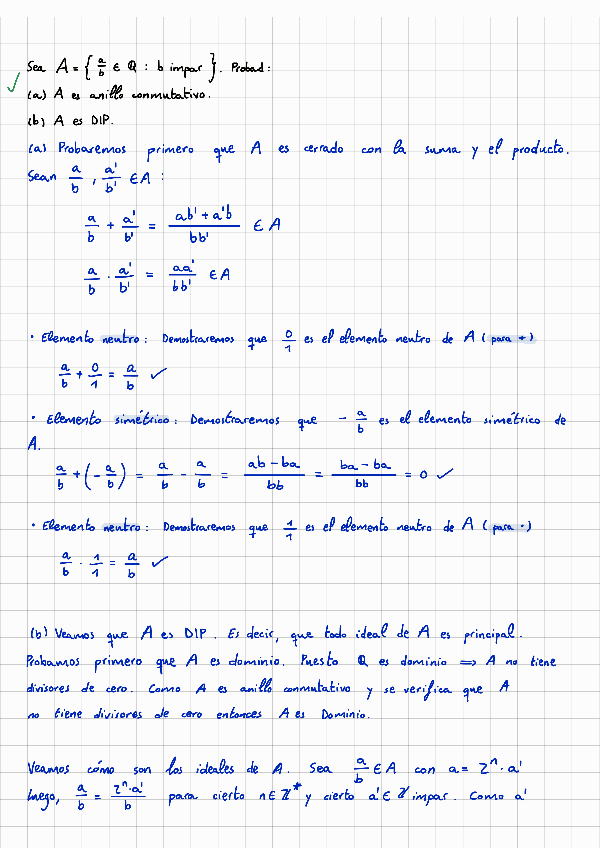 Sea A = { a/b ∈ ℚ : b impar }. Probad:
✓ (a) A es anillo conmutativo.
(b) A es DIP.
(a) Probaremos primero que A es cerrado con la suma y el producto.
Sean a/b , a'/b' ∈ A :
a/b + a'/b' = (ab' + a'b)/(bb') ∈ A
a/b · a'/b' = aa'/bb' ∈ A
· Elemento neutro: Demostraremos que 0/1 es el elemento neutro de A (para +)
a/b + 0/1 = a/b ✓
· Elemento simétrico: Demostraremos que - a/b es el elemento simétrico de
A.
a/b + (- a/b) = a/b - a/b = (ab - ba)/(bb) = (ba - ba)/(bb) = 0 ✓
· Elemento neutro: Demostraremos que 1/1 es el elemento neutro de A (para ·)
a/b · 1/1 = a/b ✓
(b) Veamos que A es DIP. Es decir, que todo ideal de A es principal.
Probamos primero que A es dominio. Puesto ℚ es dominio ⟹ A no tiene
divisores de cero. Como A es anillo conmutativo y se verifica que A
no tiene divisores de cero entonces A es Dominio.
Veamos cómo son los ideales de A. Sea a/b ∈ A con a = 2ⁿ · a'
luego, a/b = (2ⁿ · a')/b para cierto n ∈ ℤ* y cierto a' ∈ ℤ impar. Como a'